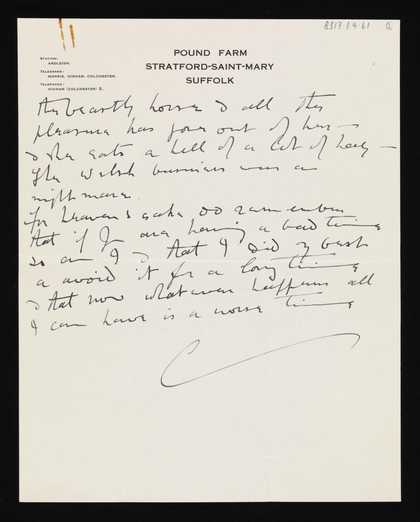 8317.1.4.61
STATION:
ARDLEIGH.
TELEGRAMS:
MORRIS, HIGHAM, COLCHESTER.
TELEPHONE:
HIGHAM (COLCHESTER) 2.
POUND FARM
STRATFORD-SAINT-MARY
SUFFOLK
the beastly horse & all the
pleasure has gone out of her –
& she eats a hell of a lot of hay –
The Welsh business was a
nightmare.
for heavens sake do remember
that if you are having a bad time
so am I & that I did my best
to avoid it for a long time
& that now whatever happens all
I can have is a worse time
C